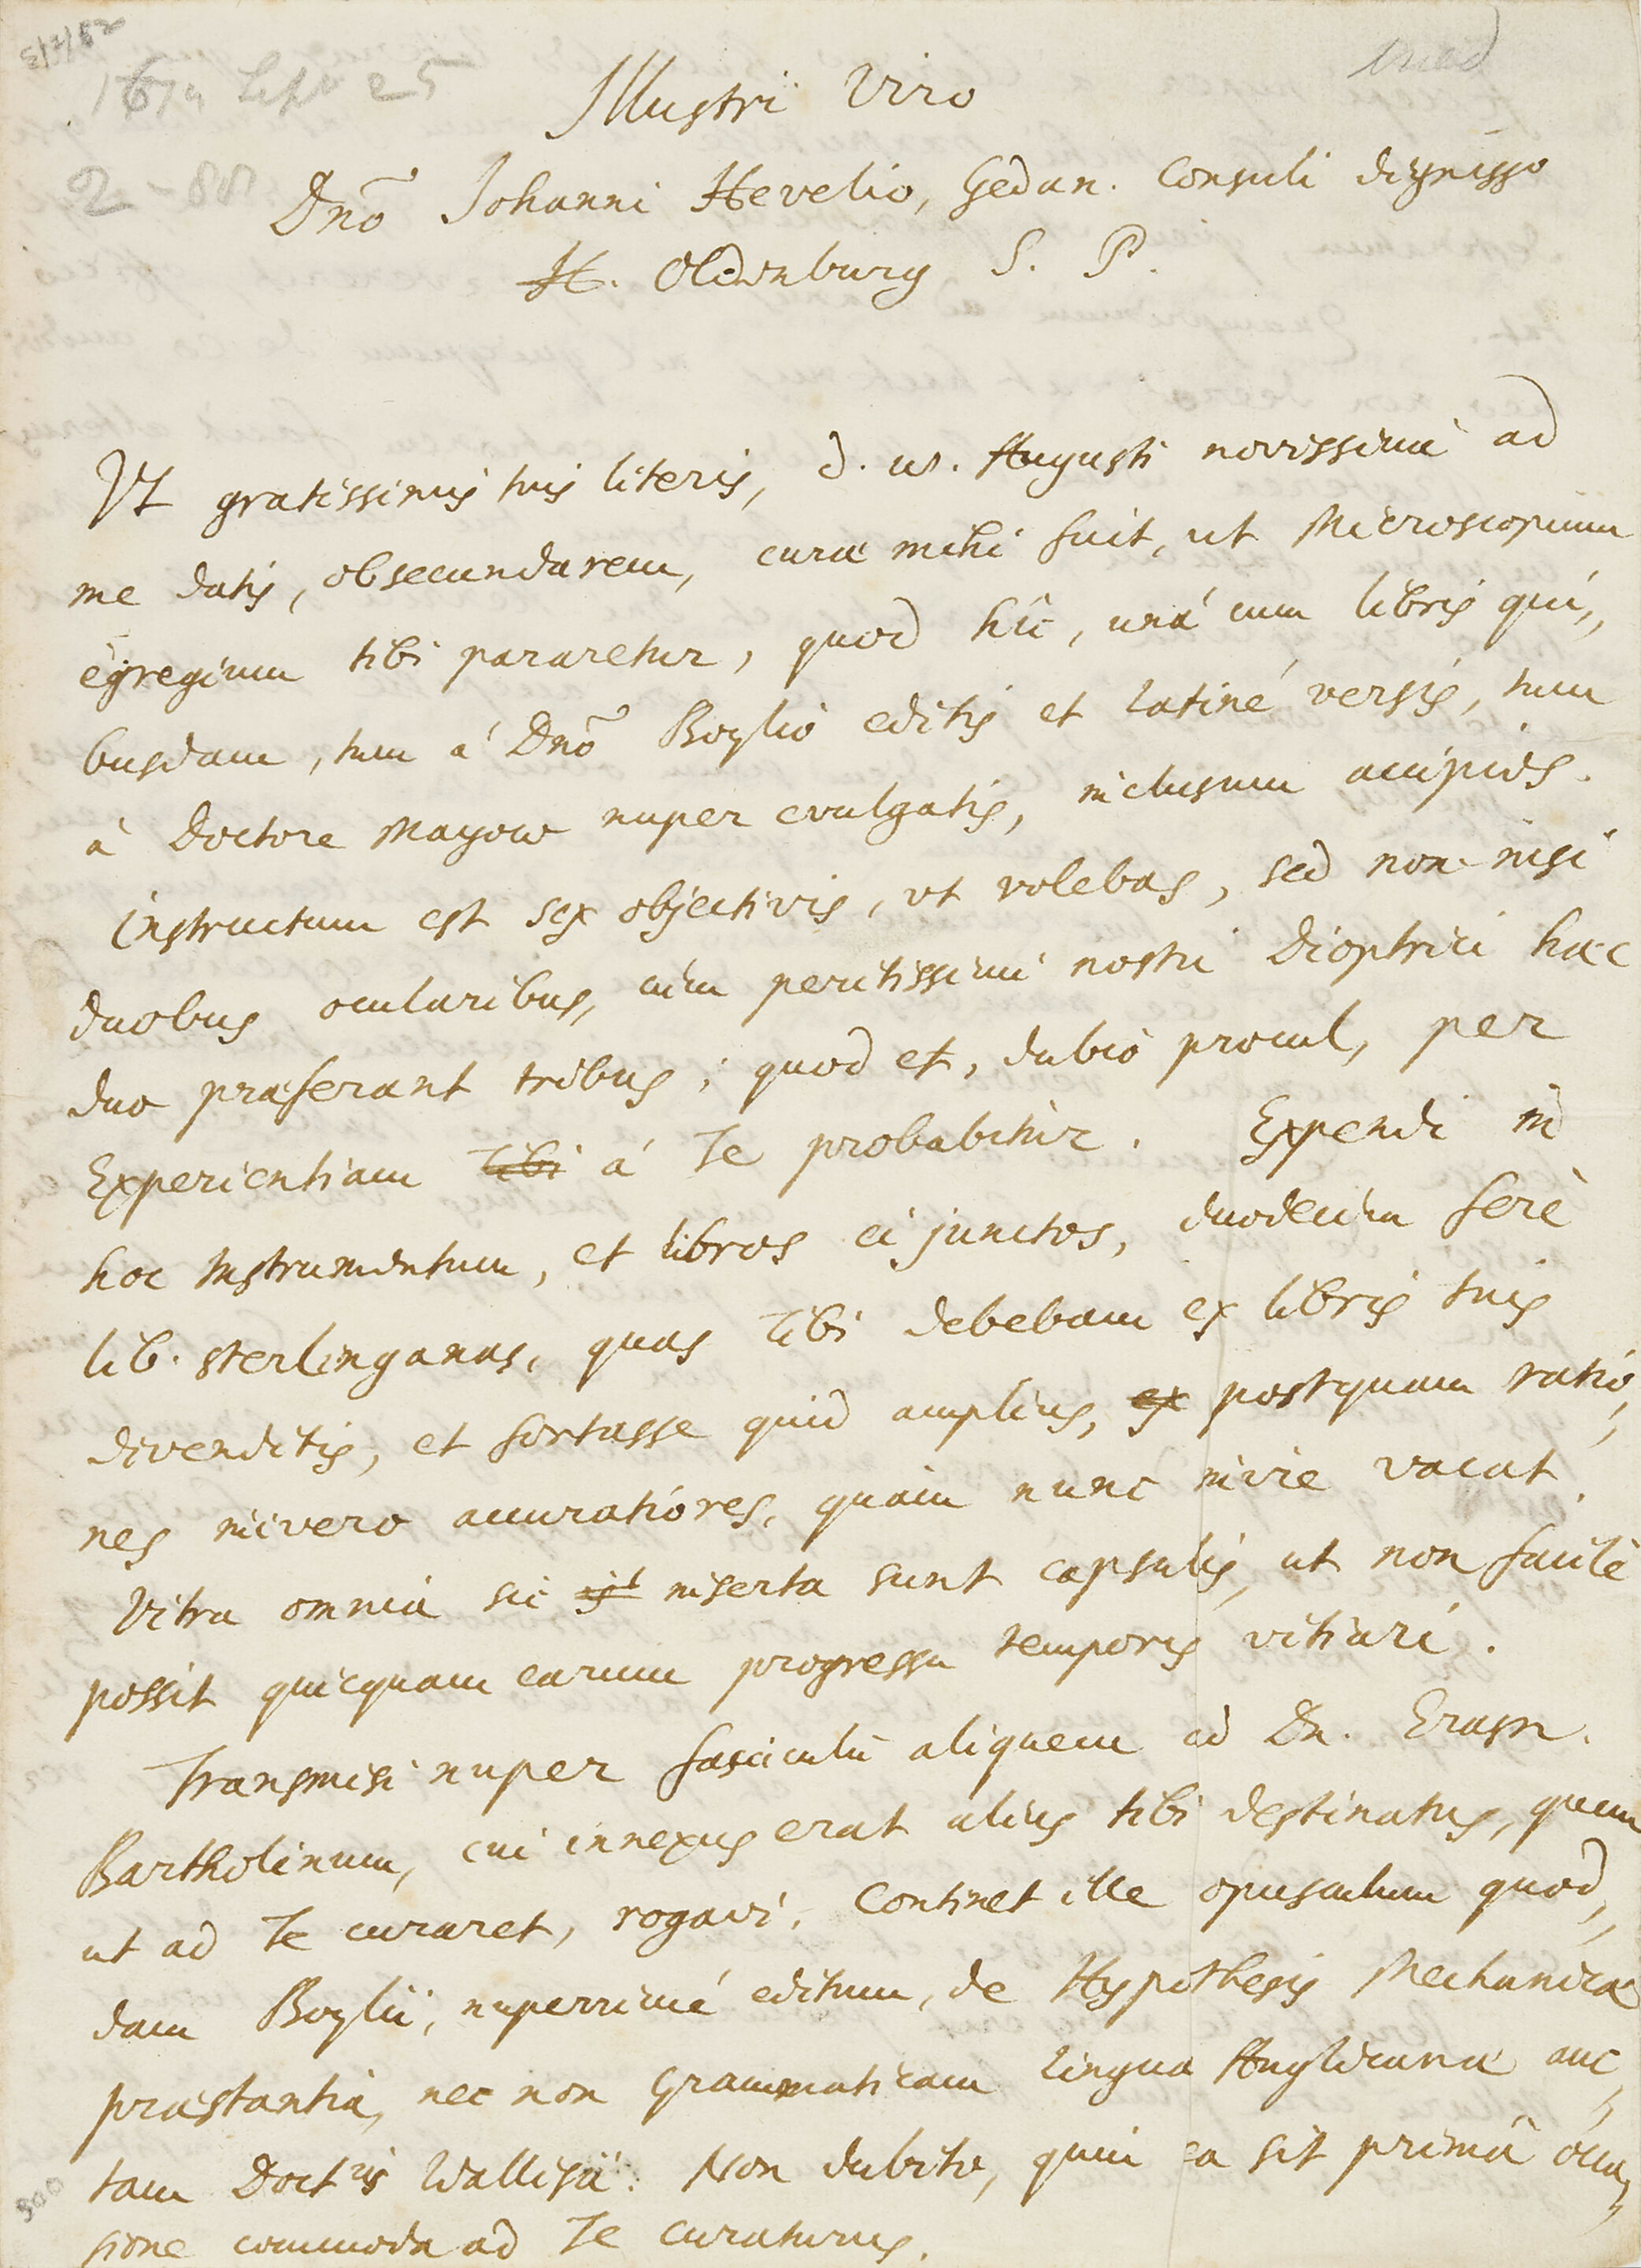 1674 Sept 25
Illustri Viro
Dnõ Johanni Hevelio, Gedan. Consuli dignisso
H. Oldenburg S. P.
Ut gratissimis tuis literis, d. 10. Augusti novissimè ad
me datis, obsecundarem, curæ mihi fuit, ut Microscopium
egregium tibi pararetur, quod hîc, unà cum libris qui,,
busdam, tum à Dnõ Boylio editis et Latinè versis, tum
à Doctore Mayow nuper evulgatis, inclusum accipies.
Instructum est sex objectivis, ut volebas, sed non nisi
duobus ocularibus, cùm peritissimi nostri Dioptrici hæc
duo præferant tribus; quod et, dubio procul, per
Experientiam tibi à Te probabitur. Expendi in
hoc Instrumentum, et libros ei junctos, duodecim ferè
lib. sterlinganas, quas Tibi debebam ex libris tuis
divenditis, et fortasse quid amplius, ex postquam ratio,,
nes inivero accuratiores, quàm nunc inire vacat.
Vitra omnia sic inserta sunt capsulis, ut non facilè
possit quicquam earum progressu temporis vitiari.
Transmisi nuper fasciculũ aliquem ad Dn. Erasm.
Bartholinum, cui innexus erat alius tibi destinatus, quem
ut ad Te curaret, rogavi. Continet ille opusculum quod,,
dam Boylii, nuperrimè editum, de Hypothesis Mechanicæ
præstantia, nec non Grammaticam Linguæ Anglicanæ auc,,
tam Doctris Wallisii. Non dubito, quin ea sit primâ occa,,
sione commoda ad Te curaturus.